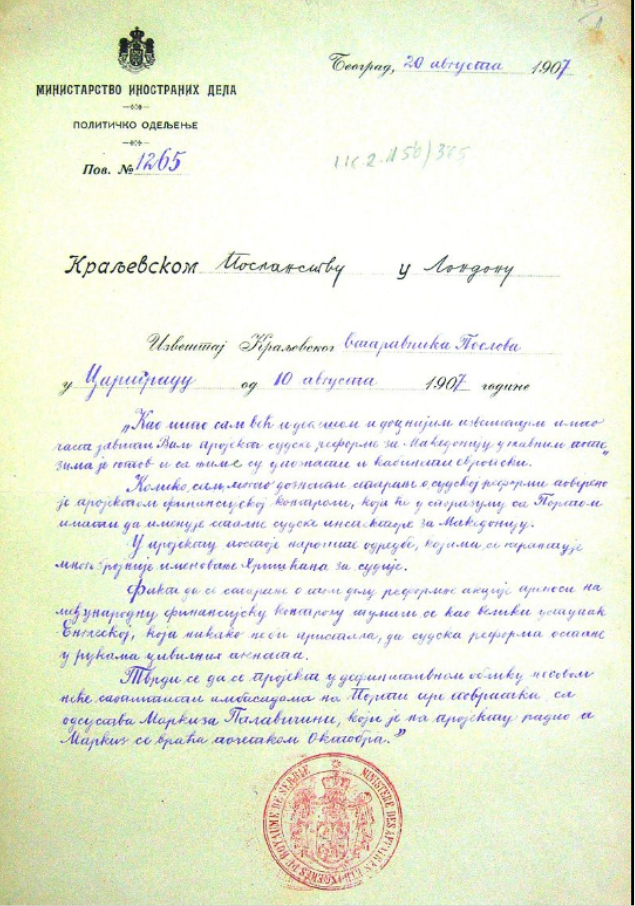 Београд, 20 августа 1907
МИНИСТАРСТВО ИНОСТРАНИХ ДЕЛА
ПОЛИТИЧКО ОДЕЉЕЊЕ
Пов. № 1265
Краљевском Посланству у Лондону
Извештај Краљевског Отправника Послова
у Цариграду од 10 августа 1907 године
„Као што сам већ и доцнијим извештајем имао
част јавити Вам пројект судске реформе за Македонију у главним
је готов и са њиме су упознати и кабинети европски.
Колико сам могао дознати старање о судској реформи поверено
је пројектом финансијској контроли, која ће у споразуму са Портом
имати да именује сталне судске инспекторе за Македонију.
У пројекту постоје нарочите одредбе, којима се гарантује
многобројније именовање Хришћана за судије.
Факт да се старање о овом делу реформне акције преноси на
међународну финансијску контролу тумачи се као велики уступак
Енглеској, која никако не би пристала, да судска реформа остане
у рукама цивилних агената.
Тврди се да се пројект у дефинитивном облику
неће саопштити амбасадама на Порти пре повратка са
одсуства Маркиза Палавичини, који је на пројекту радио а
Маркиз се враћа почетком Октобра.”
MINISTÈRE DES AFFAIRES ETRANGÈRES DU ROYAUME DE SERBIE